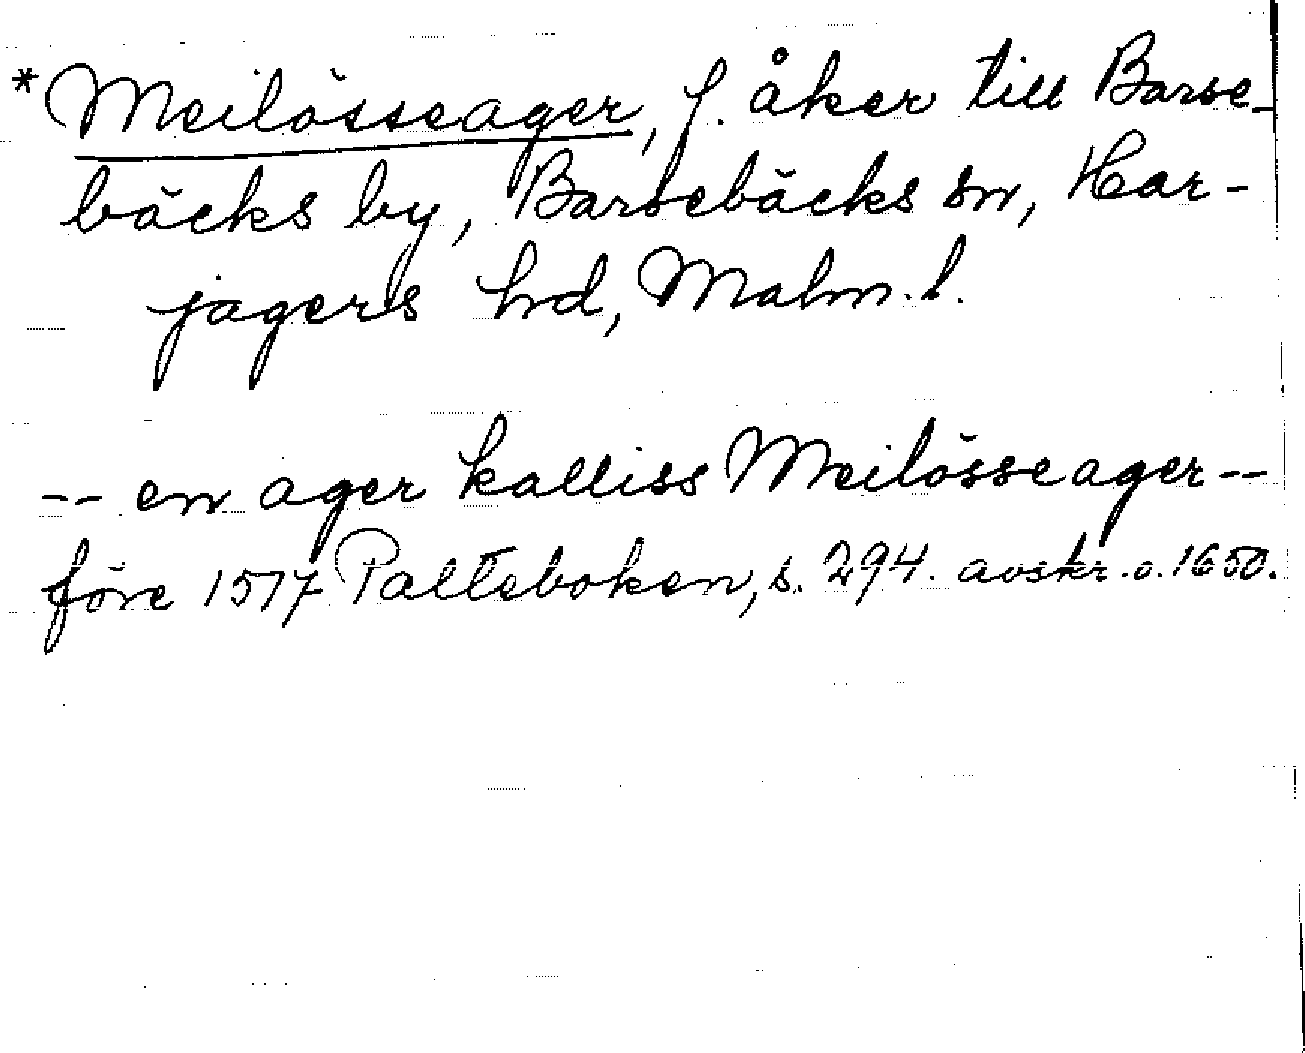 *Meilösseager, f. åker till Barse-
bäcks by, Barsebäcks sn, Har-
jagers hd, Malm.l.
-- en ager kalliss Meilösseager --
före 1577 Palteboken, s. 294. avskr. o. 1650.